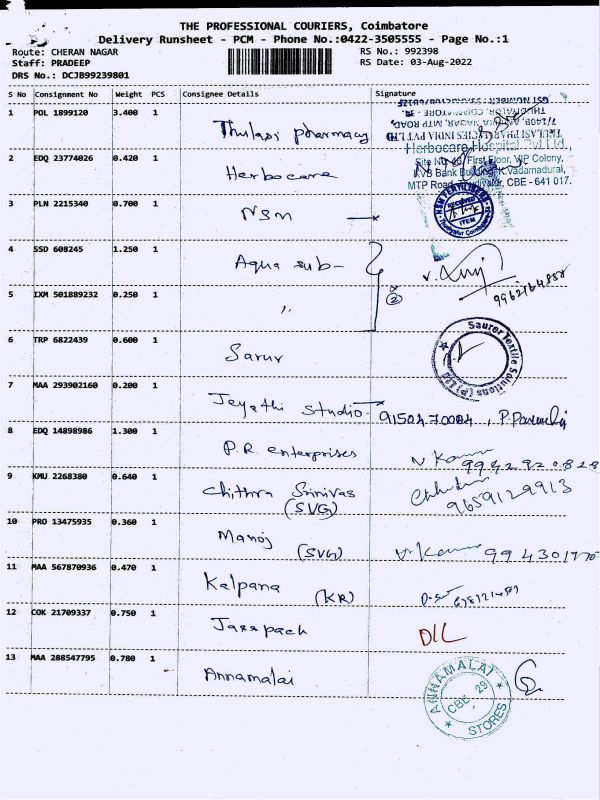 THE PROFESSIONAL COURIERS, Coimbatore
Delivery Runsheet - PCM - Phone No.:0422-3505555 - Page No.:1
Route: CHERAN NAGAR RS No.: 992398
Staff: PRADEEP RS Date: 03-Aug-2022
DRS No.: DCJB99239801
S No Consignment No Weight PCS Consignee Details Signature
1 POL 1899120 3.400 1 Thulasi pharmacy
THULASI PHARMACIES INDIA PVT LTD
2 EDQ 23774026 0.420 1 Herbocare
Herbocare Hospital Pvt Ltd.,
Site No 46, First Floor, VIP Colony,
KVB Bank Building, K.Vadamadurai,
MTP Road, Thudiyalur, CBE - 641 017.
3 PLN 2215340 0.700 1 NSM
NSM FERTILIZERS
RECEIVED
ITEM
4 SSD 608245 1.250 1 Aqua sub-
9962164858
5 IXM 501889232 0.250 1 "
2
6 TRP 6822439 0.600 1 Sarur
Saurer Textile Solutions (P) LTD
7 MAA 293902160 0.200 1 Jeyathi Studio
8 EDQ 14898986 1.300 1 P.R. enterprises
9942920828
9 KMU 2268380 0.640 1 Chithra Srinivas
(SVG) 9659129913
10 PRO 13475935 0.360 1 Manoj
(SVG)
11 MAA 567870936 0.470 1 Kalpana
(KR)
12 COK 21709337 0.750 1 Jasspack D/L
13 MAA 288547795 0.780 1 Annamalai
ANNAMALAI
CBE 29
STORES